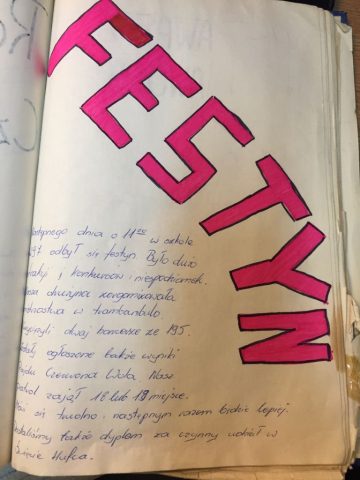 FESTYN
dnia o 11⁰⁰ w szkole
odbył się festyn. Było dużo
i konkursów i niespodzianek.
drużyna zorganizowała
w trambambulo
dwaj harcerze ze 195.
ogłoszone także wyniki
Czerwona Wola. Nasz
zajął 18 lub 19 miejsce.
się trudno i następnym razem będzie lepiej.
także dyplom za czynny udział w
Hufca.